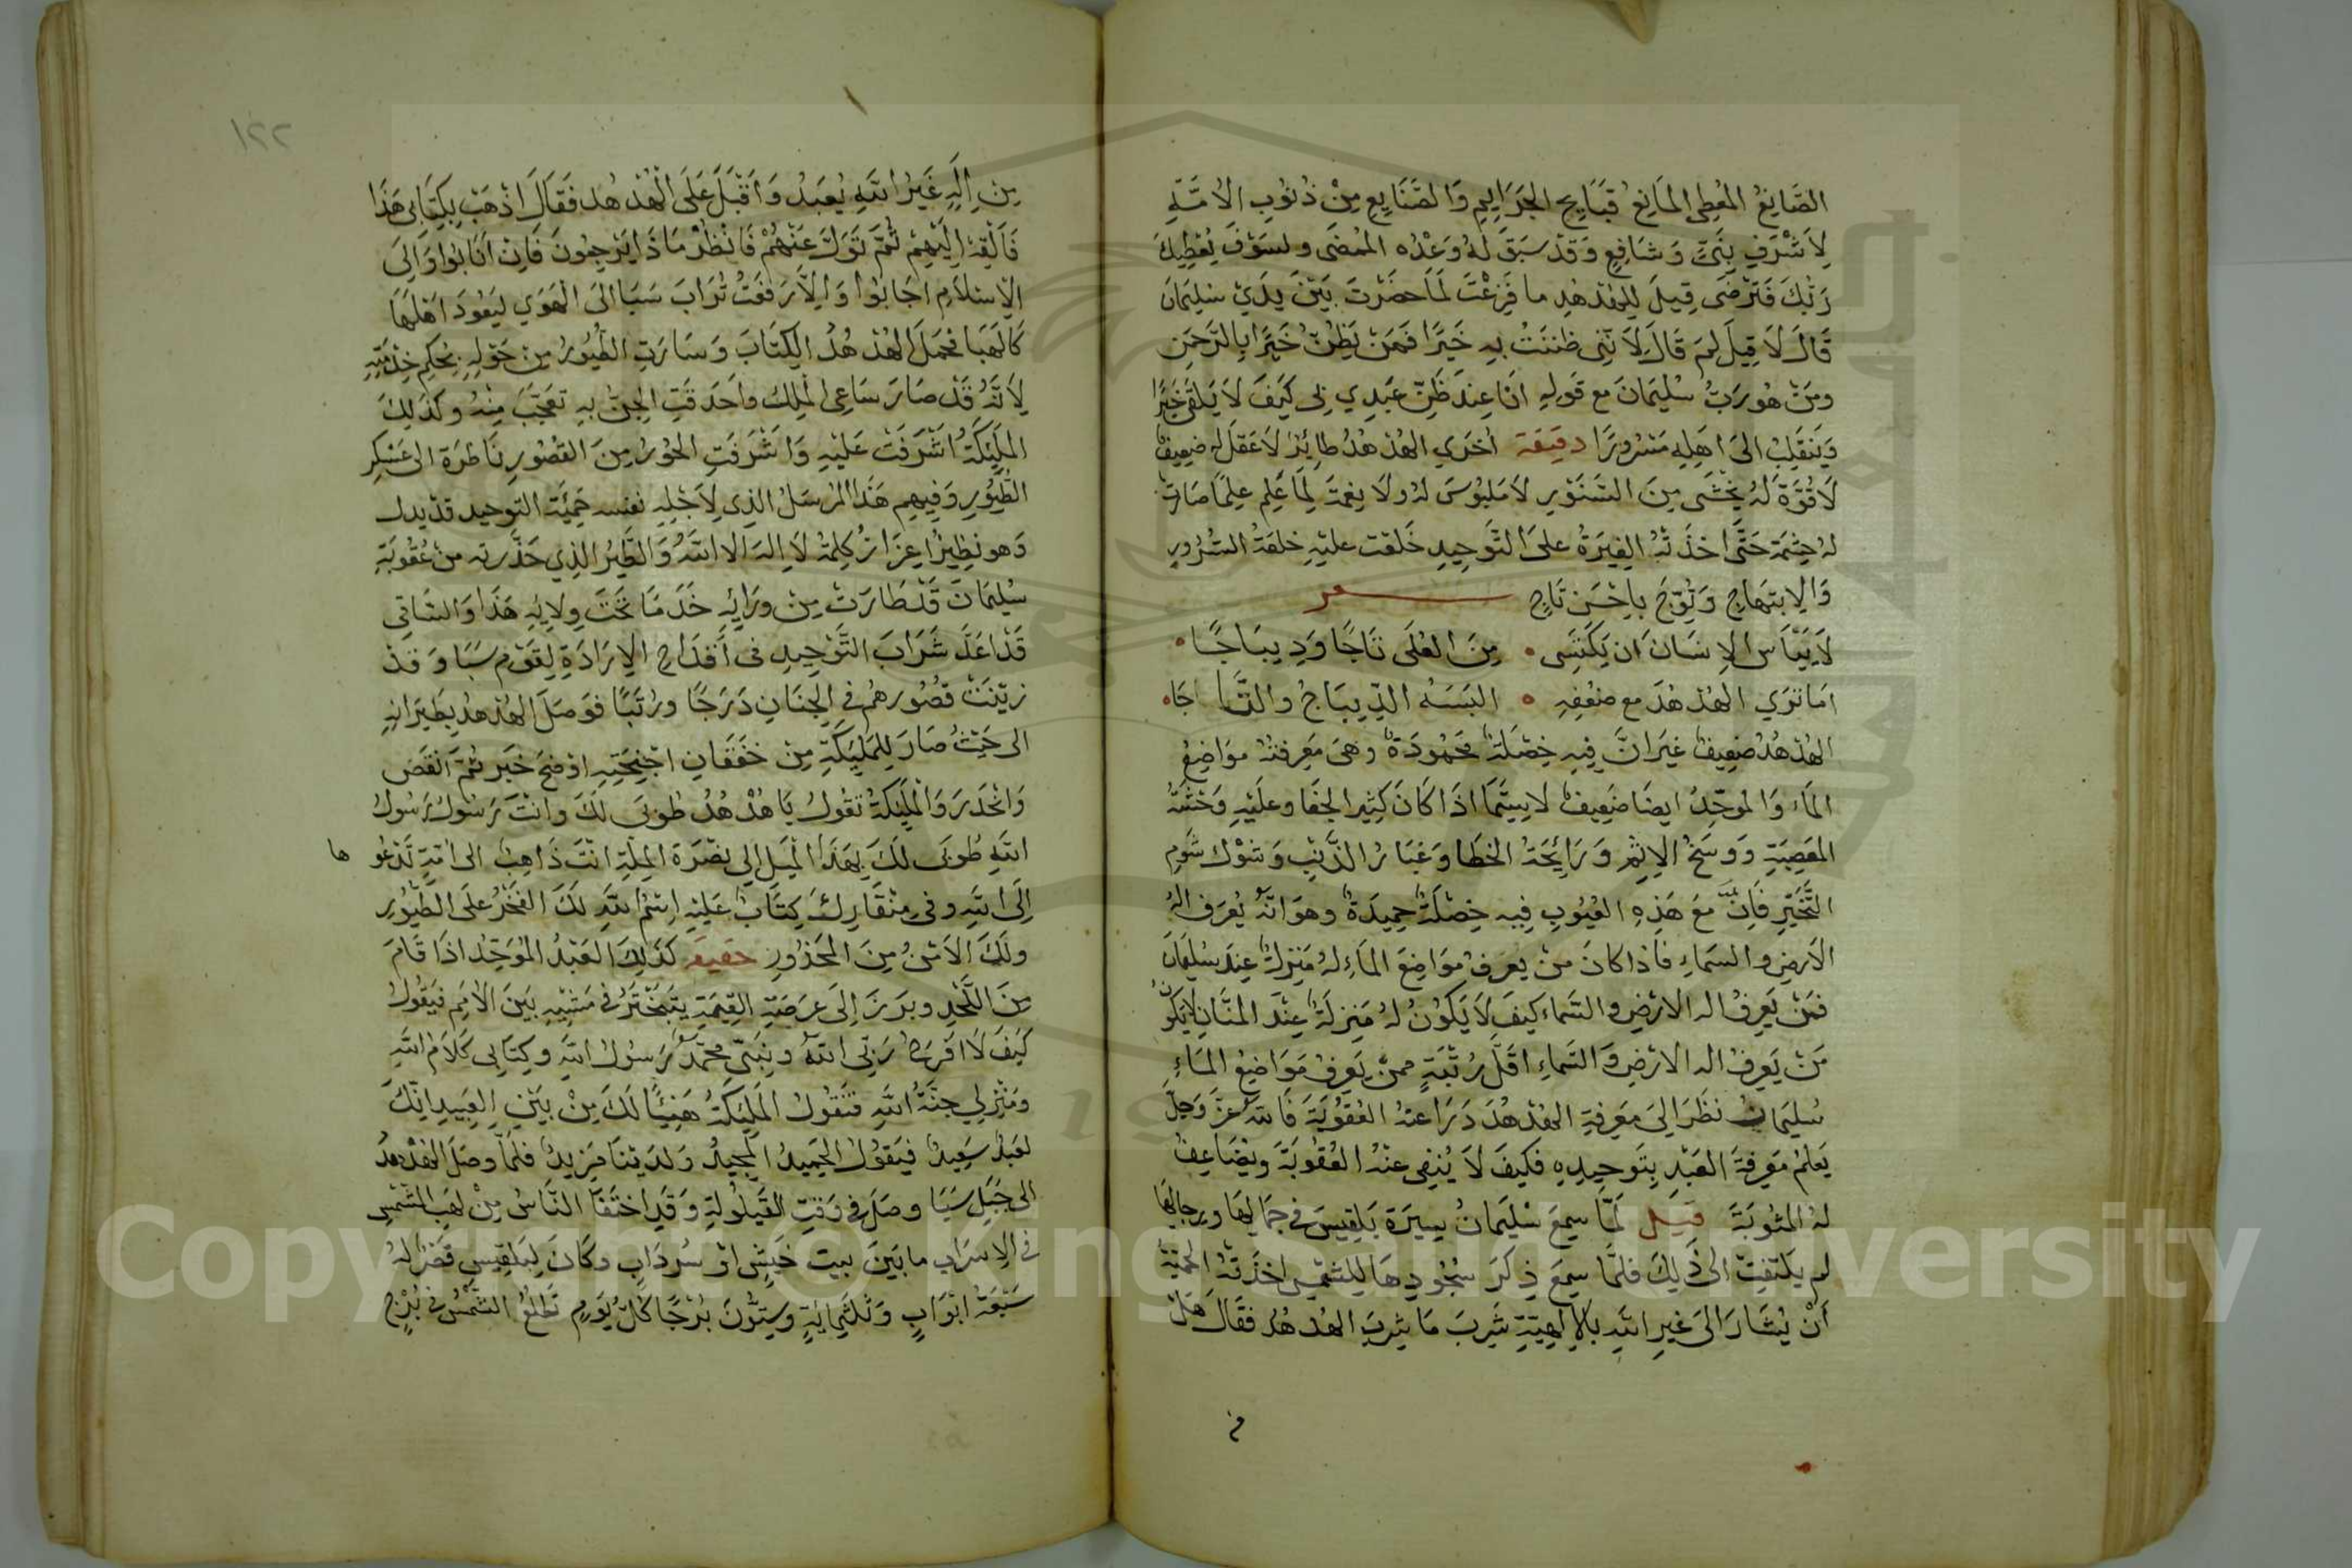 الصَّانِعُ المُعْطِي المَانِعُ قَبَايِحِ الجَرَايِمِ وَالصَّنَايِعِ مِنْ ذُنُوبِ الأُمَّةِ
لِأَشْرَفِ نَبِيٍّ وَشَافِعٍ وَقَدْ سَبَقَ لَهُ وَعْدُه المُضَى ولسَوْفَ يُعْطِيكَ
رَبُّكَ فَتَرْضَى قِيلَ لِلهُدْهُدِ ما فَزِعْتَ لَمَّا حضَرْتَ بَيْنَ يَدَيْ سُلَيْمَانَ
قَالَ لَا قِيلَ لِمَ قَالَ لِأَنِّنِي ظَنَنْتُ بِهِ خَيْرًا فَمَنْ يَظُنُّ خَيْرًا بِالرَّحْمَنِ
ومَنْ هُو رَبُّ سُلَيْمَانَ مع قَولِهِ انَا عِندَ ظَنِّ عَبْدِي بِي كَيْفَ لَا يَلْقَ خَيْرًا
وَيَنقَلِبُ الىَ اهِلِهِ مَسْرُورًا دقِيقَة اُخرَي الهُدْهُدُ طايِرٌ لَاعَقْلَ لهُ ضِعيفٌ
لَا قُوَّةَ لهُ يخْشَى مِنَ السَّنَوْرِ لَا مَلبُوسَ لهُ ولَا نِعْمَةَ لمَا عَلِمَ عِلمًا صَارَتْ
لهُ حِشمَة حَتَّى اخَذَتْهُ الغِيَرَةُ علىَ التَّوحِيدِ خَلعَت عليْهِ خلعَةُ السُّرُورِ
وَالِابتهَاجِ وَتُوِّجَ بِاحْسَنِ تَاجٍ شعر
لَا يَيْأَسِ الاِنسَانَ ان يَكتَسِى ۰ مِنَ العُلَى تَاجًا وَدِيبَاجًا ۰
امَا تَرَي الهُدْهُدَ مع ضعْفِهِ ۰ البَسَهُ الدِّيبَاجُ والتَّاجَا ۰
الهُدْهُدُ ضعِيفٌ غيرَ انَّ فِيهِ خِصْلَةٌ مَحْمُودَةٌ وهىَ مَعرِفتُهُ مَوَاضِعُ
المَاءِ وَالمُوحِّدُ ايضًا ضَعِيفٌ لاسِيَّمَا اذَا كَانَ كَثِير الجَفَا وعلَيْهِ وَحْشَةُ
المَعصِيَةِ وَوسَخُ الاِثمِ وَرَايِحَةُ الخَطَا وَغبَارُ الذَّنْبِ وَشوْكُ شَوم
التَّحَيُّرِ فَإِنَّ مَعَ هَذِهِ العُيُوبِ فِيهِ خِصْلَةٌ حَمِيدَةٌ وهوَ انَّهُ يُعرَف الهُ
الارضِ والسمَاءِ فَاذا كانَ مَنْ يعرفُ مَوَاضِعَ المَاءِ لهُ مَنزلَةٌ عِندَ سُليْمَانَ
فمَنْ يَعرِفُ اله الارْضِ والسَّمَاءِ كيفَ لَا يَكُونُ لهُ مَنِزِلَةٌ عِنْدَ المَنَّانِ لَا يَكُونُ
مَنْ يَعرِفُ اله الارضِ وَالسَّمَاءِ اقَلَّ رُتْبَةٍ ممن يعرِفُ مَوَاضِعُ المَاءِ
سُليمَان نظَرَ الىَ مَعرِفةِ الهُدْهُدَ دَرَا عنهُ العُقوبَةَ فَاللهُ عَزَّ وَجلَّ
يَعلَمُ مَعرِفةَ العَبْدِ بِتَوحِيدِهِ فكَيفَ لَا يُنفِى عنْهُ العُقُوبَةَ ويُضَاعِفُ
لهُ المثُوبَةَ قيل لَمَّا سمِعَ سُلَيمَانُ بِسيرَة بَلقِيسَ في جمَالِهَا ورِجَالِهَا
لم يلتفِت الى ذَلِكَ فلمَّا سمِعَ ذِكرَ سُجُودِهَا لِلشمْسِ اخذَتْهُ الحمِيَّةُ
أَنْ يُشَارَ الىَ غيرِ اللهِ بالالَهِيَّةِ شَرِبَ مَا شَرِبَ الهُدهُدُ فقَالَ هَلْ
م
١٢٢
مِن اِلَهٍ غَيْرُ اللهِ يُعبَدُ وَاَقْبَلَ عَلَى الْهُدْهُد فَقَالَ اذْهَبْ بِكِتَابِى هَذَا
فَأَلْقِهْ اِلَيْهِمْ ثُمَّ تَوَلَّ عَنْهُمْ فَانْظُرْ مَاذَا يَرْجِعُونَ فَاِنْ اَنَابُوا وَالِىَ
الِاسْلَامِ اجَابُوا وَاِلَّا رفَعتُ تُرَابَ سَبَا الىَ الْهَوَي ليَعُودَ اهْلهَا
كَالهَبَا فحَمَلَ الهُدْهُدُ الكِتَابَ وَسَارَتِ الطُّيُورُ مِنْ حَوْلِهِ بِحُكِم خِدْمَتِهِ
لِاَنَّهُ قَدْ صَارَ سَاعِى المَلِكِ وَاَحدَقَتِ الجِنُّ بهِ تعَجُّبَ مِنْهُ وكَذَلِكَ
المَلَيِكَةُ اشْرَفَتْ عَلَيْهِ وَاشْرَفَتِ الحُورُ مِنَ القصُورِ نَاظِرَة الى عَسْكِر
الطُّيُورِ وَفِيهِم هَذَا المُرسَلُ الذِي لِاَجْلِهِ نفسه حَمِيَّة التوحِيد قدْ يدل
وَهو نظِيرُ اِعزَازُ كِلمَةُ لَا اِلهَ الا اللهُ وَالطَّيْرُ الذِي حَذَّرته من عُقُوبَةِ
سُلَيْمَانَ قَدْ طَارَتْ مِنْ ورَايِهِ خَدَمًا تَحتَ وِلَايِهِ هَذَا وَالسَّاقِى
قَدْ اعَدَّ شَرَابَ التَّوْحِيدِ فى أَقدَاحِ الِارَادَةِ لِقَوْمِ سَبَا وَقدْ
زيّنَت قُصُورهُم في الجِنَانِ دَرَجًا ورُتَبًا فوَصَلَ الهُدْهُد بِطيَرَانِهِ
الى حَيْثُ صَارَ لِلمَلَيِكَةِ مِنْ خَفَقَانِ اجْنِحَتِهِ اوْضَحَ خَبَر ثُمَّ انْقَضَ
وَانحدَرَ وَالْمَلَيِكَةُ تقُولُ يَا هُدْهُدُ طُوبَى لَكَ وانْتَ رَسُولُ رَسُولُ
اللهِ طُوبَى لَكَ بهَذَا الْمَيْلِ اِلي نصْرَة المِلَّةِ انْتَ ذَاهِبٌ الى امَّةٍ تَدعُو ها
اِلَى اللهِ وفى مِنْقَارِكَ كِتَابٌ عَلَيْهِ اِسْمُ اللهِ لَكَ الفَخْرُ علَى الطُّيُورِ
ولَكَ الاَمْنُ مِنَ المَحذُورِ حقيقَه كَذَلِكَ العَبْدُ الْمُوَحِّدُ اذَا قَامَ
مِنَ اللَّحْدِ وبرَزَ اِلَى عرَصَةِ القِيمَةِ يتَبَخْتَرُ في مَشْيِهِ بَيْنَ الاُمَمِ فيَقُولُ
كَيفَ لَا افْرَحُ رَبِّى اللهُ ونَبِيِّى محمّدٌ رَسُولُ اللهِ وكِتَابِى كَلَامُ اللهِ
ومَنْزِلِي جنَّةُ اللهِ فتَقُولُ الملَيِكَةُ هَنِيًّا لَكَ مِنْ بَيْنِ العَبِيدِ انَّكَ
لعَبْدٌ سَعِيدٌ فيَقُولُ الحَمِيدُ المَجِيدُ ولَدَيْنَا مَزِيدٌ فلمّا وصَلَ الهُدْهُدُ
الى جَبَلِ سَبَا وصَلَ في وَقتِ القَيلُولَةِ وَقَدِ اختَفَا النَّاسُ مِنْ لهَبِ الشَّمْسِ
في الِاسرَابِ مابَينَ بيت خَيْشٍ اوْ سُردَابٍ وكَانَ لِبَلقِيسِ قَصْرٌ لهُ
سَبْعَة ابْوَابٍ وَثلَثِمِايَةٍ وسِتُّونَ بُرْجًا كلَّ يَوْمٍ تَطلُعُ الشَّمْسُ في بُرْجٍ